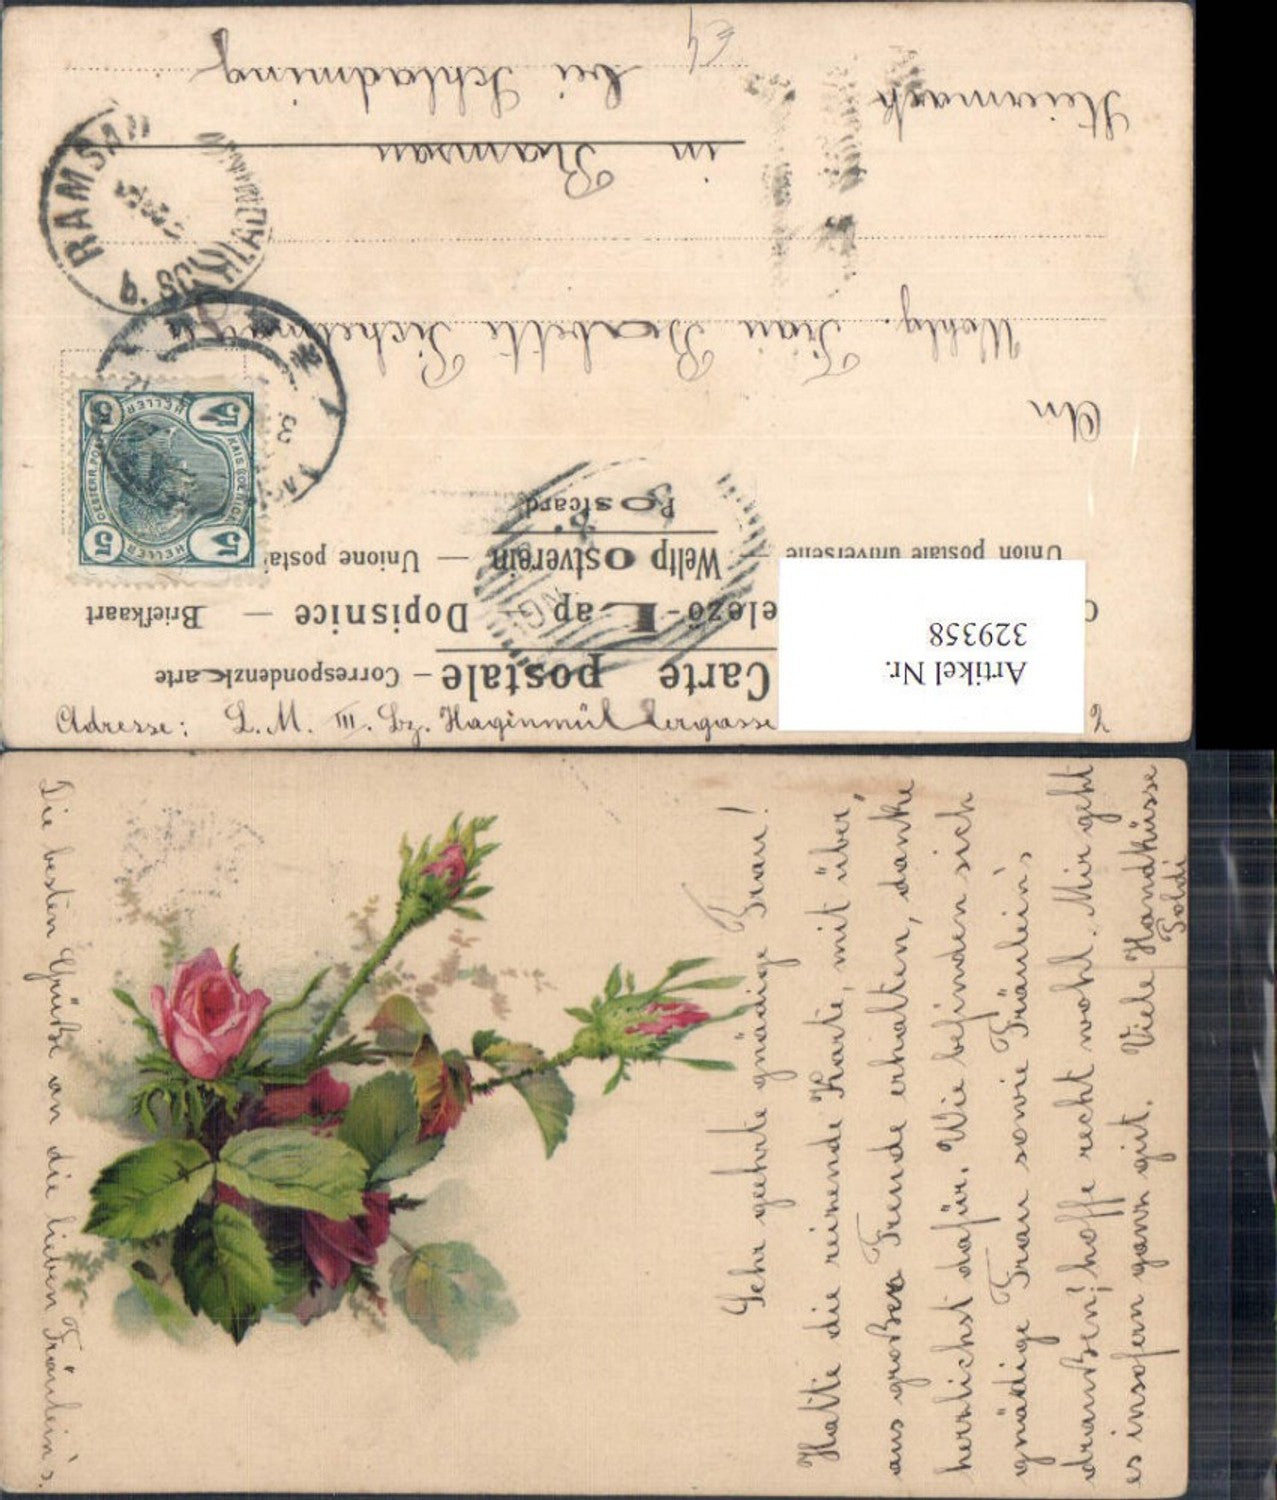 Adresse: L. M. III. Bz. Hagenmüllergasse
Carte postale – Correspondenzkarte
Dopisnice — Briefkaart
Weltpostverein — Unione posta
Union postale universelle —
Postcard
An
Wohlg. Frau Babette
in Ramsau
bei Schladming
Steiermark
RAMSAU
SCHLADMING
KAIS. KOENIGL. OESTERR. POST
5 HELLER 5
5 HELLER 5
Artikel Nr.
329358
Sehr geehrte gnädige Frau!
Hatte die reizende Karte, mit über,
aus großer Freude erhalten, danke
herzlichst dafür. Wie befinden sich
gnädige Frau sowie Fräulein's
draußen; hoffe recht wohl. Mir geht
es insofern ganz gut. Viele Handküsse
Poldi
Die besten Grüße an die lieben Fräulein's.